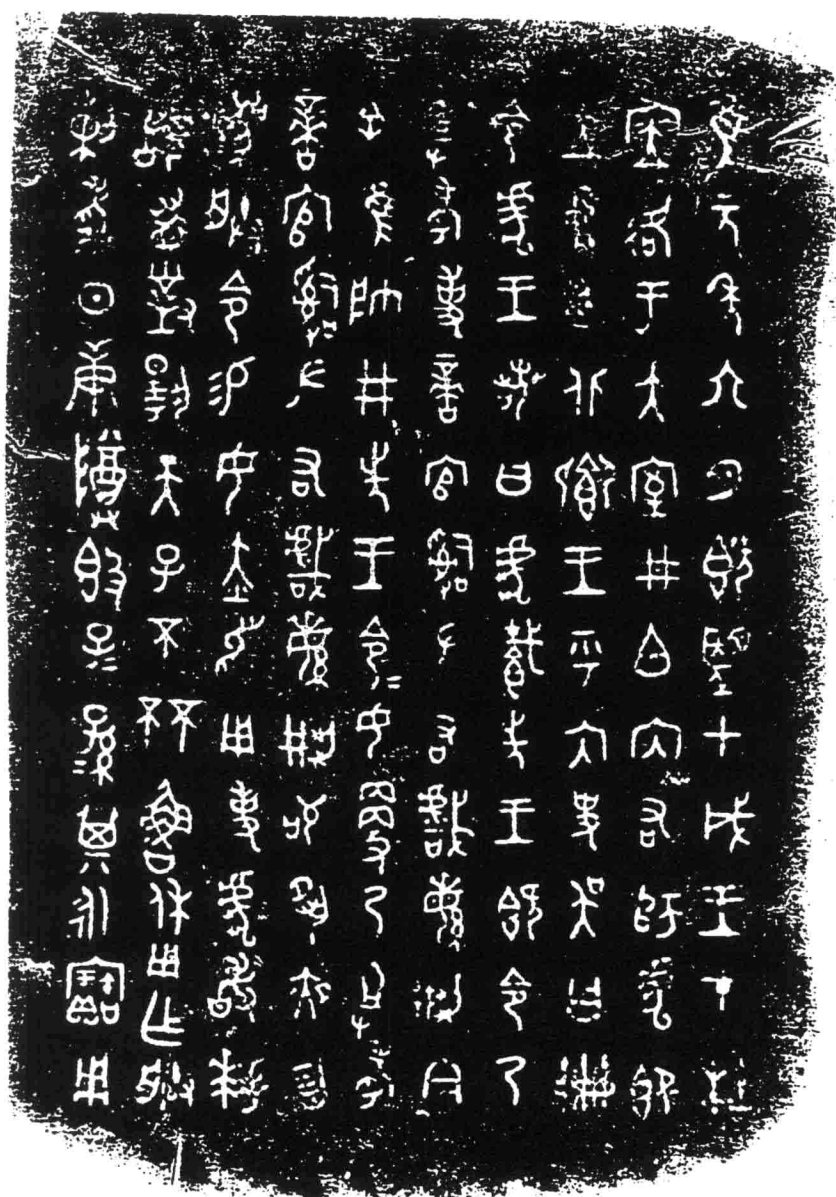 隹元年六月既望甲戌王才杜
㡴𢓜于大室井白內右師虎即
立中廷北鄉王乎內史吳曰冊
令虎王若曰虎𩁹先王既令乃
祖考事啻官𤔲左右戲緐𠛱今
余隹帥井先王令=女更乃祖考
啻官𤔲左右戲緐𠛱苟夙夜勿
灋朕令易女赤舄用事虎敢拜
𩒨首對揚天子不𠀠魯休用乍朕
剌考日庚尊簋子=孫=其永寶用